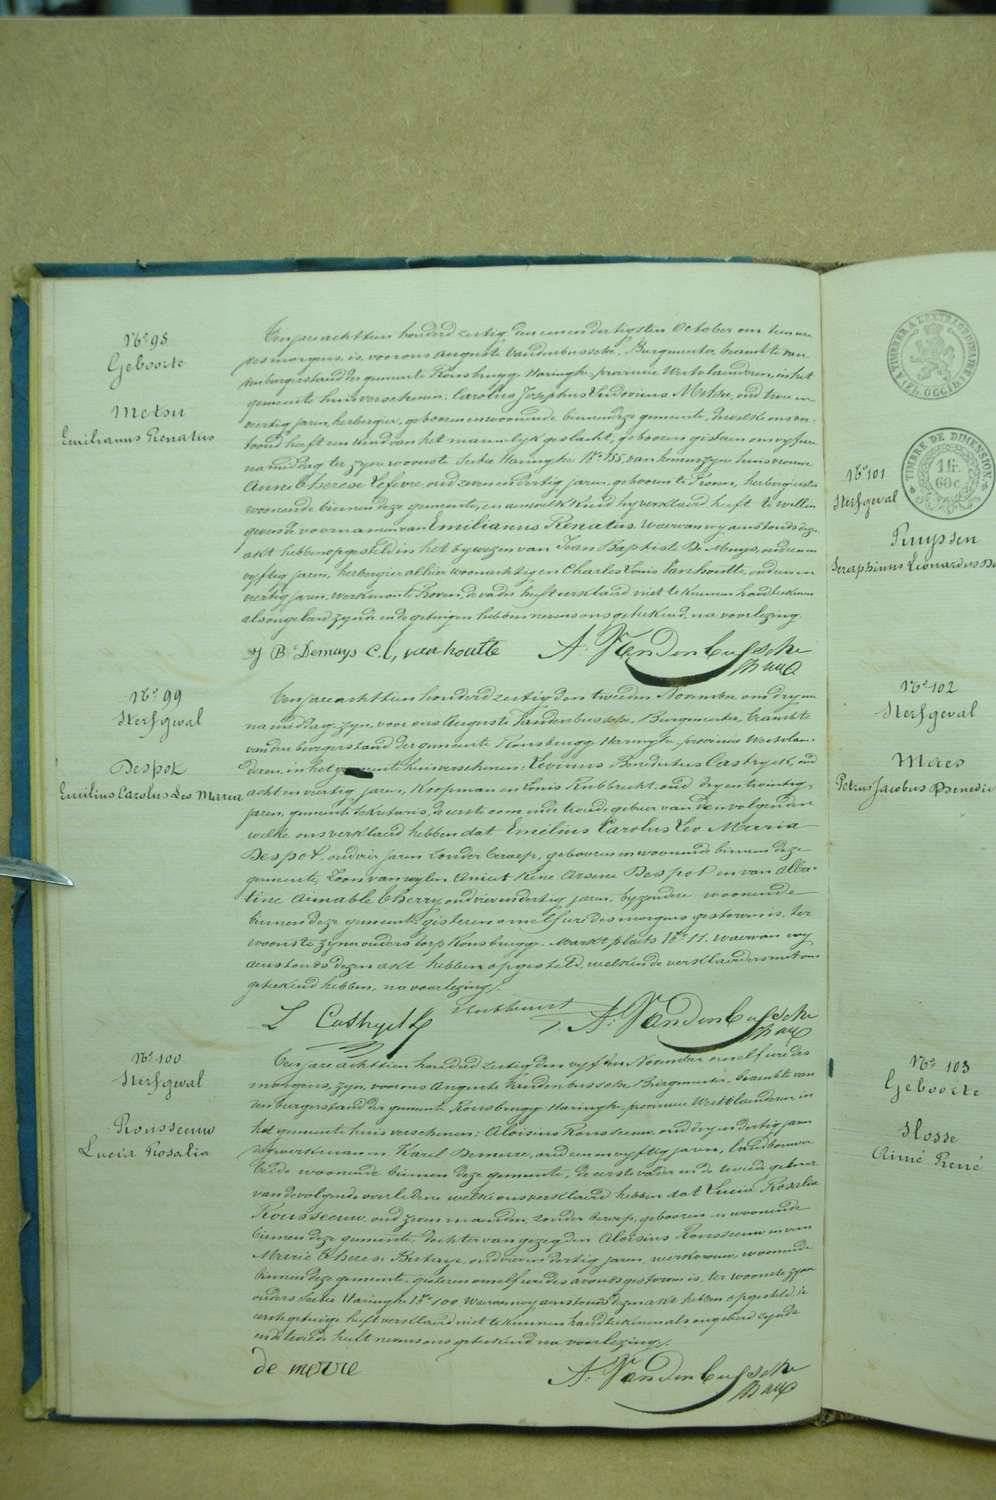 No 98
Geboorte
Metsu
Emilianus Renatus
Ten jare achttien honderd zestig den eenendertigsten October om tien ure
des morgens, is voor ons Auguste Vandenbussche, Burgmeester, beambte van
den burgerstand der gemeente Rousbrugge Haringhe, provincie Westvlaanderen, in het
gemeente huis verschenen: Carolus Josephus Ludovicus Metsu, oud
veertig jaren, herbergier, geboren en woonende binnen deze gemeente, dewelke ons ver-
toond heeft een kind van het mannelijk geslacht, geboren gisteren om vyf ure
na middag ter zyne woonste Sectie Haringhe No 155, van hem en zyne huisvrouw
Anne Therese Lefevre, oud zevenendertig jaren, geboren te Proven, herbergierster
woonende binnen deze gemeente, en aan welk kind hy verklaard heeft te willen
geven de voornamen van Emilianus Renatus. Waervan wy aenstonds deze
akt hebben opgesteld in het bywezen van Jean Baptiste De Muys, oud
vyftig jaren, herbergier alhier woonachtig en Charles Louis Vanhoutte, oud
veertig jaren, werkman te Proven, de vader heeft verklaard niet te kunnen handteekenen
als ongeleerd zynde ende getuigen hebben nevens ons geteekend, na voorlezing.
J B Demuys C. L. vanhoutte A. Vandenbussche
No 99
Sterfgeval
Despot
Emilius Carolus Leo Maria
Ten jare achttien honderd zestig den tweeden November om dry ure
na middag, zyn voor ons Auguste Vandenbussche, Burgmeester, beambte
van den burgerstand der gemeente Rousbrugge Haringhe, provincie Westvlaan-
deren, in het gemeente huis verschenen: Livinus Benedictus Castryck, oud
acht en veertig jaren, Koopman en Louis Rubbrecht, oud dry en twintig
jaren, gemeente sekretaris, de eerste oom ende tweede gebuer van den volgenden
welke ons verklaerd hebben dat Emilius Carolus Leo Maria
Despot, oud vier jaren zonder beroep, geboren en woonende binnen deze
gemeente, Zoon van wylen Amict Réné Arsene Despot en van Alber-
tine Amable Therry, oud vierendertig jaren, byzondere woonende
binnen deze gemeente, gisteren om elf ure des morgens gestorven is, ter
woonste zyner ouders dorp Rousbrugge Marktplaets No 11. Waervan wy
aenstonds dezen akt hebben opgesteld, welken de verklaerders met ons
geteekend hebben, na voorlezing.
L Castryck Rubbrecht A. Vandenbussche
No 100
Sterfgeval
Rousseeuw
Lucia Rosalia
Ten jare achttien honderd zestig den vyfden November om elf ure des
morgens, zyn, voor ons Auguste Vandenbussche Burgmeester, beambte van
den burgerstand der gemeente Rousbrugge Haringhe, provincie Westvlaanderen, in
het gemeente huis verschenen: Aloisius Rousseeuw, oud dry en dertig jaren
en Karel Demerre, oud een en vyftig jaren, landbouwer
beide woonende binnen deze gemeente, de eerste vader en de tweede gebuer
van de volgende overledene welke ons verklaerd hebben dat Lucia Rosalia
Rousseeuw, oud zeven maanden, zonder beroep, geboren en woonende
binnen deze gemeente, dochter van gezegden Aloisius Rousseeuw en van
Marie Therese oud vierendertig jaren, werkvrouw, woonende
binnen deze gemeente, gisteren om elf ure des avonds gestorven is, ter woonste zyner
ouders Sectie Haringhe No 100. Waervan wy aenstonds dezen akt hebben opgesteld, de
eerste getuige heeft verklaard niet te kunnen handteekenen als ongeleerd zynde
ende tweede heeft nevens ons geteekend na voorlezing.
de merre A. Vandenbussche
TIMBRE DE DIMENSION
1 fr.
60 c.
No 101
Sterfgeval
Ruyssen
Seraphinus Leonardus
No 102
Sterfgeval
Maes
Petrus Jacobus Benedic
No 103
Geboorte
Hosse
Aimé René